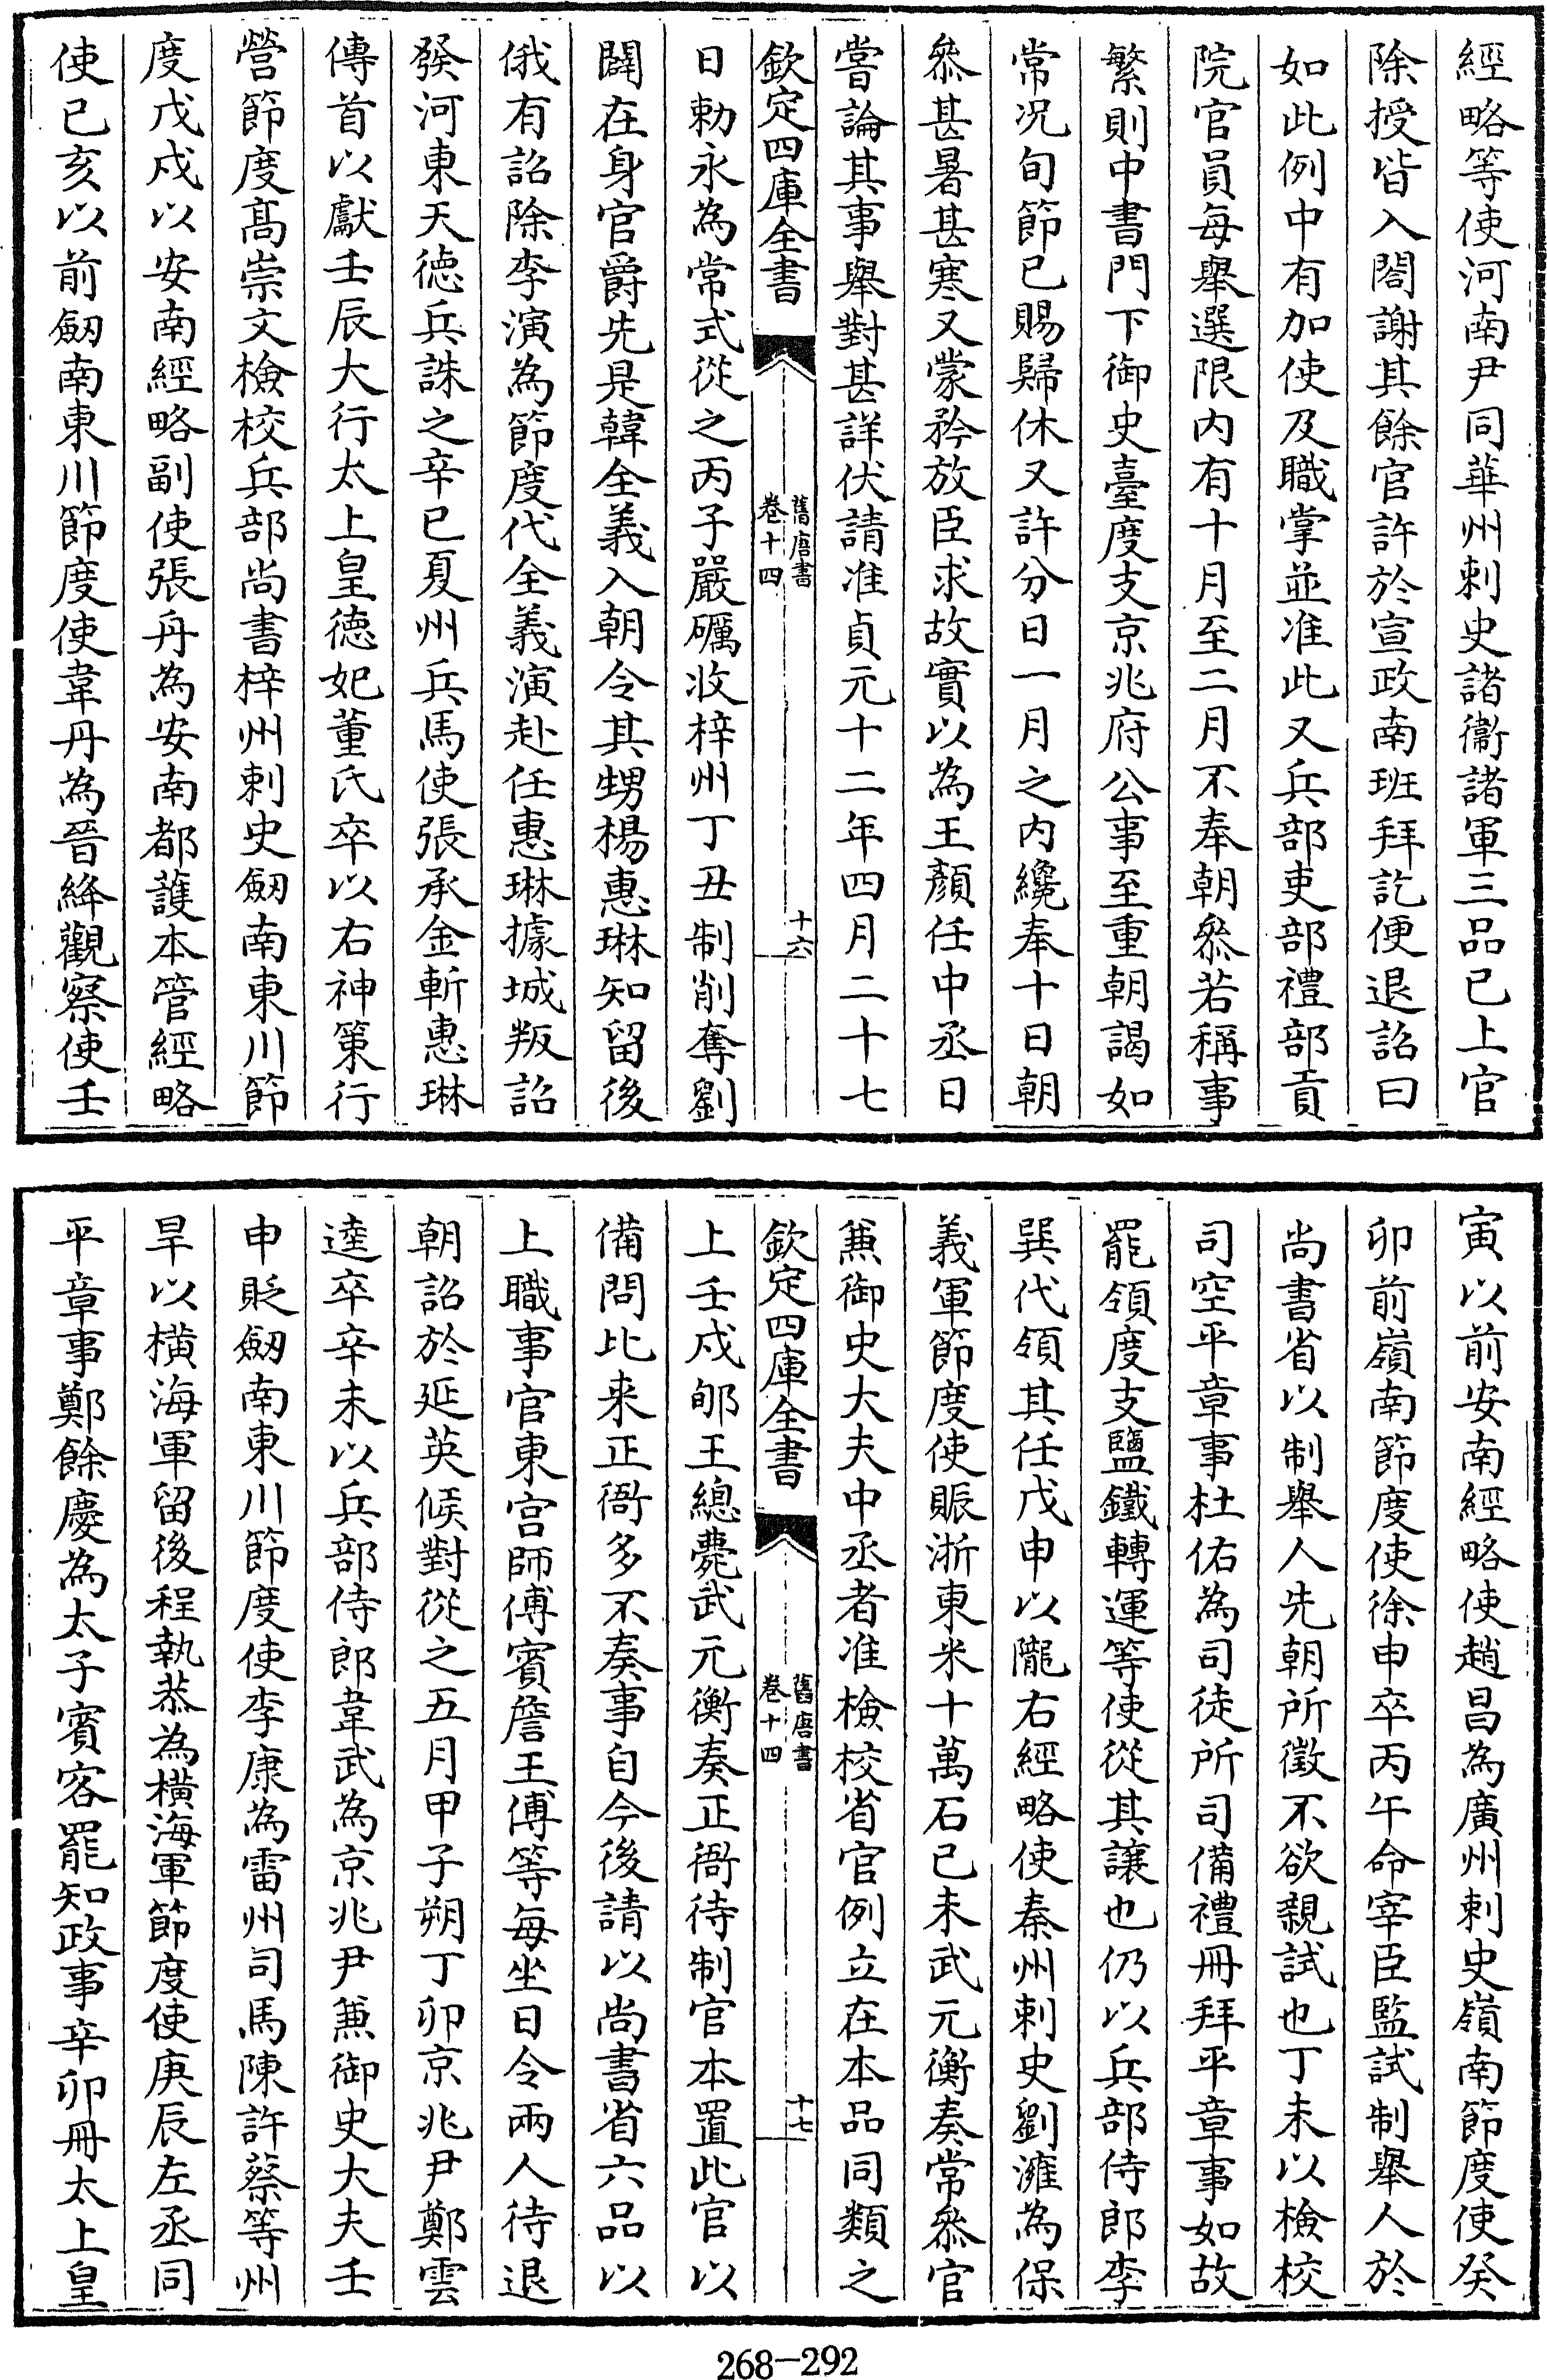 經略等使河南尹同華州刺史諸衞諸軍三品已上官
除授皆入閤謝其餘官許於宣政南班拜訖便退詔曰
如此例中有加使及職掌並准此又兵部吏部禮部貢
院官員每舉選限内有十月至二月不奉朝叅若稱事
繁則中書門下御史臺度支京兆府公事至重朝謁如
常况旬節已賜歸休又許分日一月之内纔奉十日朝
叅甚暑甚寒又蒙矜放臣求故實以為王顔任中丞日
嘗論其事舉對甚詳伏請准貞元十二年四月二十七
欽定四庫全書
舊唐書
卷十四
十六
日勅永為常式從之丙子嚴礪收梓州丁丑制削奪劉
闢在身官爵先是韓全義入朝令其甥楊惠琳知留後
俄有詔除李演為節度代全義演赴任惠琳據城叛詔
發河東天德兵誅之辛巳夏州兵馬使張承金斬惠琳
傳首以獻壬辰大行太上皇德妃董氏卒以右神策行
營節度髙崇文檢校兵部尚書梓州刺史劒南東川節
度戊戍以安南經略副使張舟為安南都護本管經略
使己亥以前劒南東川節度使韋丹為晉絳觀察使壬
寅以前安南經略使趙昌為廣州刺史嶺南節度使癸
卯前嶺南節度使徐申卒丙午命宰臣監試制舉人於
尚書省以制舉人先朝所徵不欲親試也丁未以檢校
司空平章事杜佑為司徒所司備禮冊拜平章事如故
罷領度支鹽鐵轉運等使從其讓也仍以兵部侍郎李
巽代領其任戊申以隴右經略使秦州刺史劉澭為保
義軍節度使賑浙東米十萬石己未武元衡奏常叅官
兼御史大夫中丞者准檢校省官例立在本品同類之
欽定四庫全書
舊唐書
卷十四
十七
上壬戍邠王總薨武元衡奏正衙待制官本置此官以
備問比来正衙多不奏事自今後請以尚書省六品以
上職事官東宫師傅賓詹王傅等每坐日令兩人待退
朝詔於延英候對從之五月甲子朔丁卯京兆尹鄭雲
逵卒辛未以兵部侍郎韋武為京兆尹兼御史大夫壬
申貶劒南東川節度使李康為雷州司馬陳許蔡等州
旱以橫海軍留後程執恭為橫海軍節度使庚辰左丞同
平章事鄭餘慶為太子賓客罷知政事辛卯冊太上皇
268-292